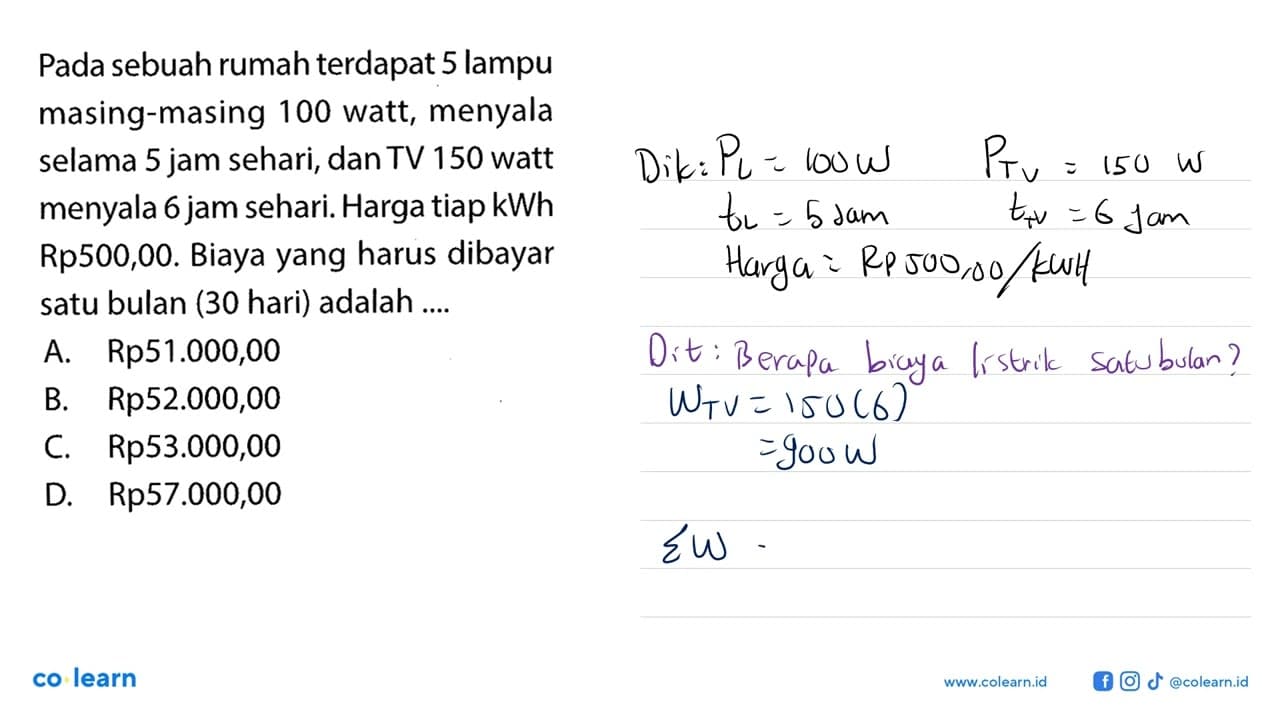 Pada sebuah rumah terdapat 5 lampu
masing-masing 100 watt, menyala
selama 5 jam sehari, dan TV 150 watt
menyala 6 jam sehari. Harga tiap kWh
Rp500,00. Biaya yang harus dibayar
satu bulan (30 hari) adalah ....
A. Rp51.000,00
B. Rp52.000,00
C. Rp53.000,00
D. Rp57.000,00
Dik: PL = 100 W PTV = 150 W
tL = 5 Jam tTV = 6 Jam
Harga = Rp 500,00/kWH
Dit: Berapa biaya listrik satu bulan?
WTV = 150 (6)
= 900 W
ΣW -
co learn
www.colearn.id @colearn.id